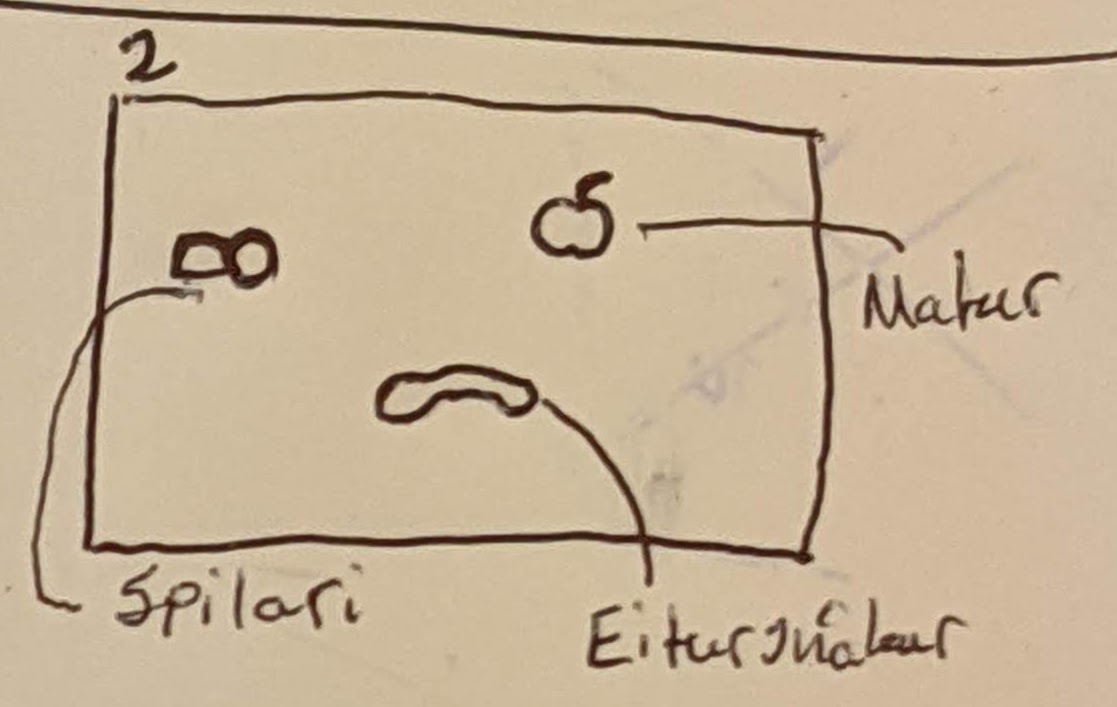 2
Matur
Spilari
Eitursnákur